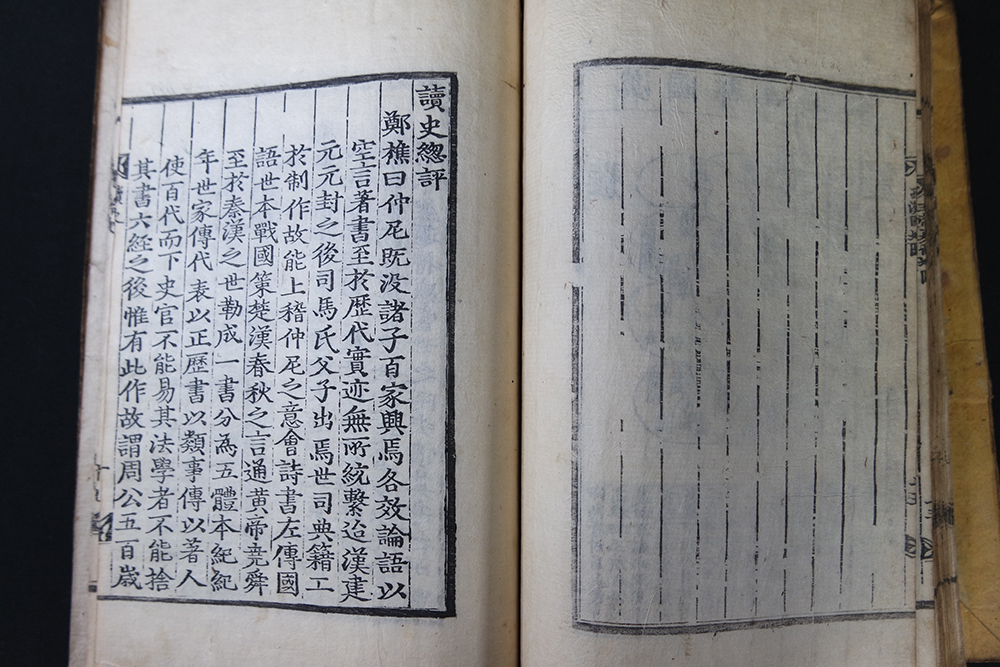 讀史總評
鄭樵曰仲尼既没諸子百家興焉各效論語以
空言著書至於歷代實迹無所統繫迨漢建
元元封之後司馬氏父子出焉世司典籍工
於制作故能上稽仲尼之意會詩書左傳國
語世本戰國策楚漢春秋之言通黄帝堯舜
至於秦漢之世勒成一書分為五體本紀紀
年世家傳代表以正歷書以類事傳以著人
使百代而下史官不能易其法學者不能捨
其書六經之後惟有此作故謂周公五百歳